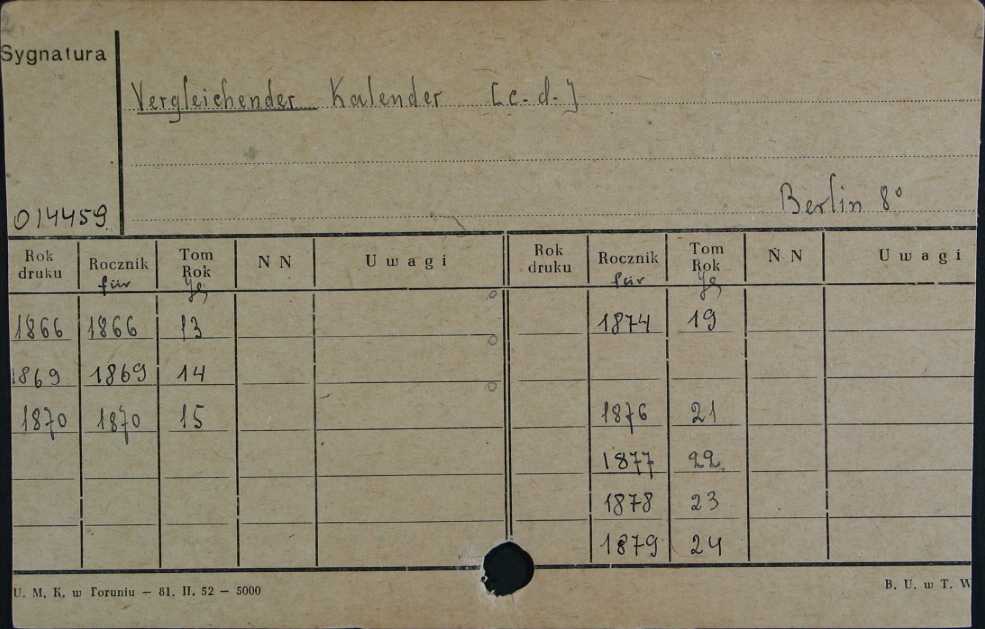 Sygnatura
Vergleichender Kalender [c.d.]
014459
Berlin 8°
Rok druku Rocznik für Tom Rok Jg NN Uwagi Rok druku Rocznik für Tom Rok Jg NN Uwagi
1866 1866 13 1874 19
1869 1869 14
1870 1870 15 1876 21
1877 22
1878 23
1879 24
U. M. K. w Toruniu — 81. II. 52 — 5000 B. U. w T. W